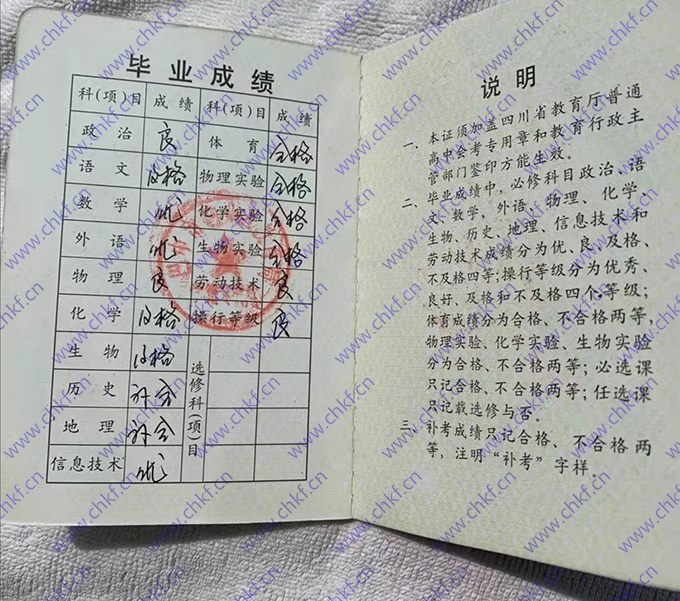 毕业成绩
科(项)目 成绩 科(项)目 成绩
政治 良 体育 合格
语文 及格 物理实验 合格
数学 优 化学实验 合格
外语 优 生物实验 合格
物理 良 劳动技术 良
化学 及格 操行等级 良
生物 及格 选修科(项)目
历史
地理
信息技术 优
说明
一、本证须加盖四川省教育厅普通
高中会考专用章和教育行政主
管部门鉴印方能生效。
二、毕业成绩中，必修科目政治、语
文、数学、外语、物理、化学、
生物、历史、地理、信息技术和
劳动技术成绩分为优、良、及格、
不及格四等；操行等级分为优秀、
良好、及格和不及格四个等级；
体育成绩分为合格、不合格两等，
物理实验、化学实验、生物实验
分为合格、不合格两等；必选课
只记合格、不合格两等；任选课
只记载选修与否。
三、补考成绩只记合格、不合格两
等，注明“补考”字样。
www.chkf.cn